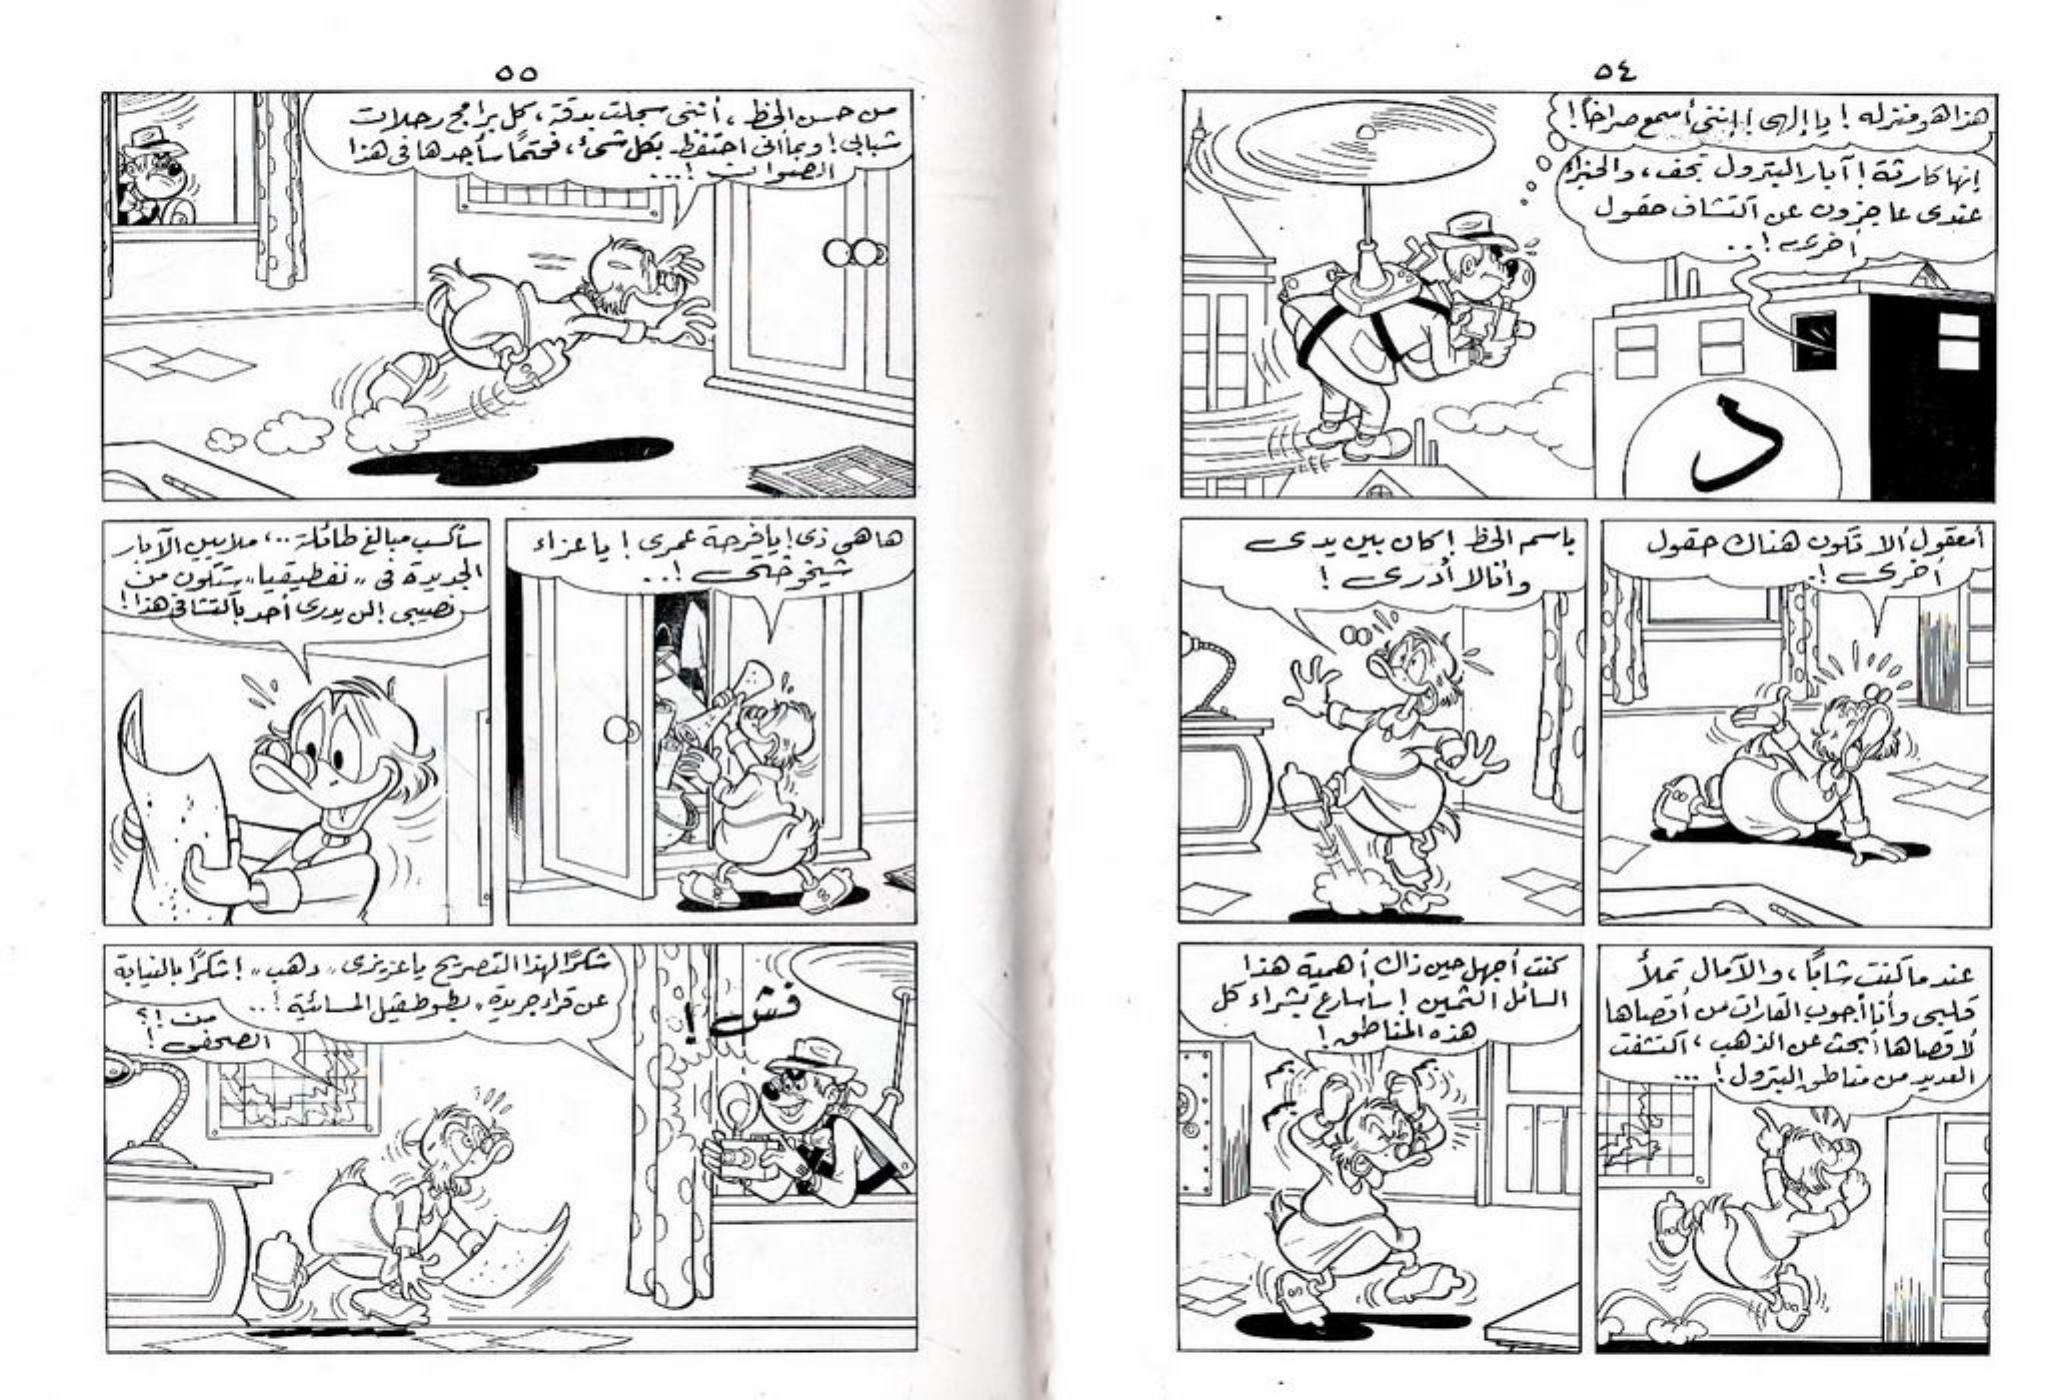 ٥٤
هذا هو منزله ! يا إلهى ! إننى أسمع صراخاً !
إنها كارثة ! آبار البترول تجف ، والخبراء
عندى عاجزون عن اكتشاف حقول
أخرى ! ..
د
أمعقول ألا تكون هناك حقول
أخرى !.
باسم الحظ ! كان بين يدى
وأنا لا أدرى !
عندما كنت شاباً ، والآمال تملأ
قلبى وأنا أجوب القارات من أقصاها
لأقصاها أبحث عن الذهب ، اكتشفت
العديد من مناطق البترول ! ...
كنت أجهل حين ذاك أهمية هذا
السائل الثمين ! سأسارع بشراء كل
هذه المناطق !
٥٥
من حسن الحظ ، أننى سجلت بدقة ، كل برامج رحلات
شبابى ! وبما أنى احتفظ بكل شىء ، فحتماً سأجدها فى هذا
الصوان ! ...
ها هى ذى ! يا فرحة عمرى ! يا عزاء
شيخوختى ! ..
سأكسب مبالغ طائلة .. ، ملايين الآبار
الجديدة فى " نفطيقيا " ستكون من
نصيبى ! لن يدرى أحد باكتشافى هذا !
شكراً لهذا التصريح يا عزيزى " دهب " ! شكراً بالنيابة
عن قراء جريدة " بطوطقيل المسائية ! ..
فش !
من !؟
الصحفى !